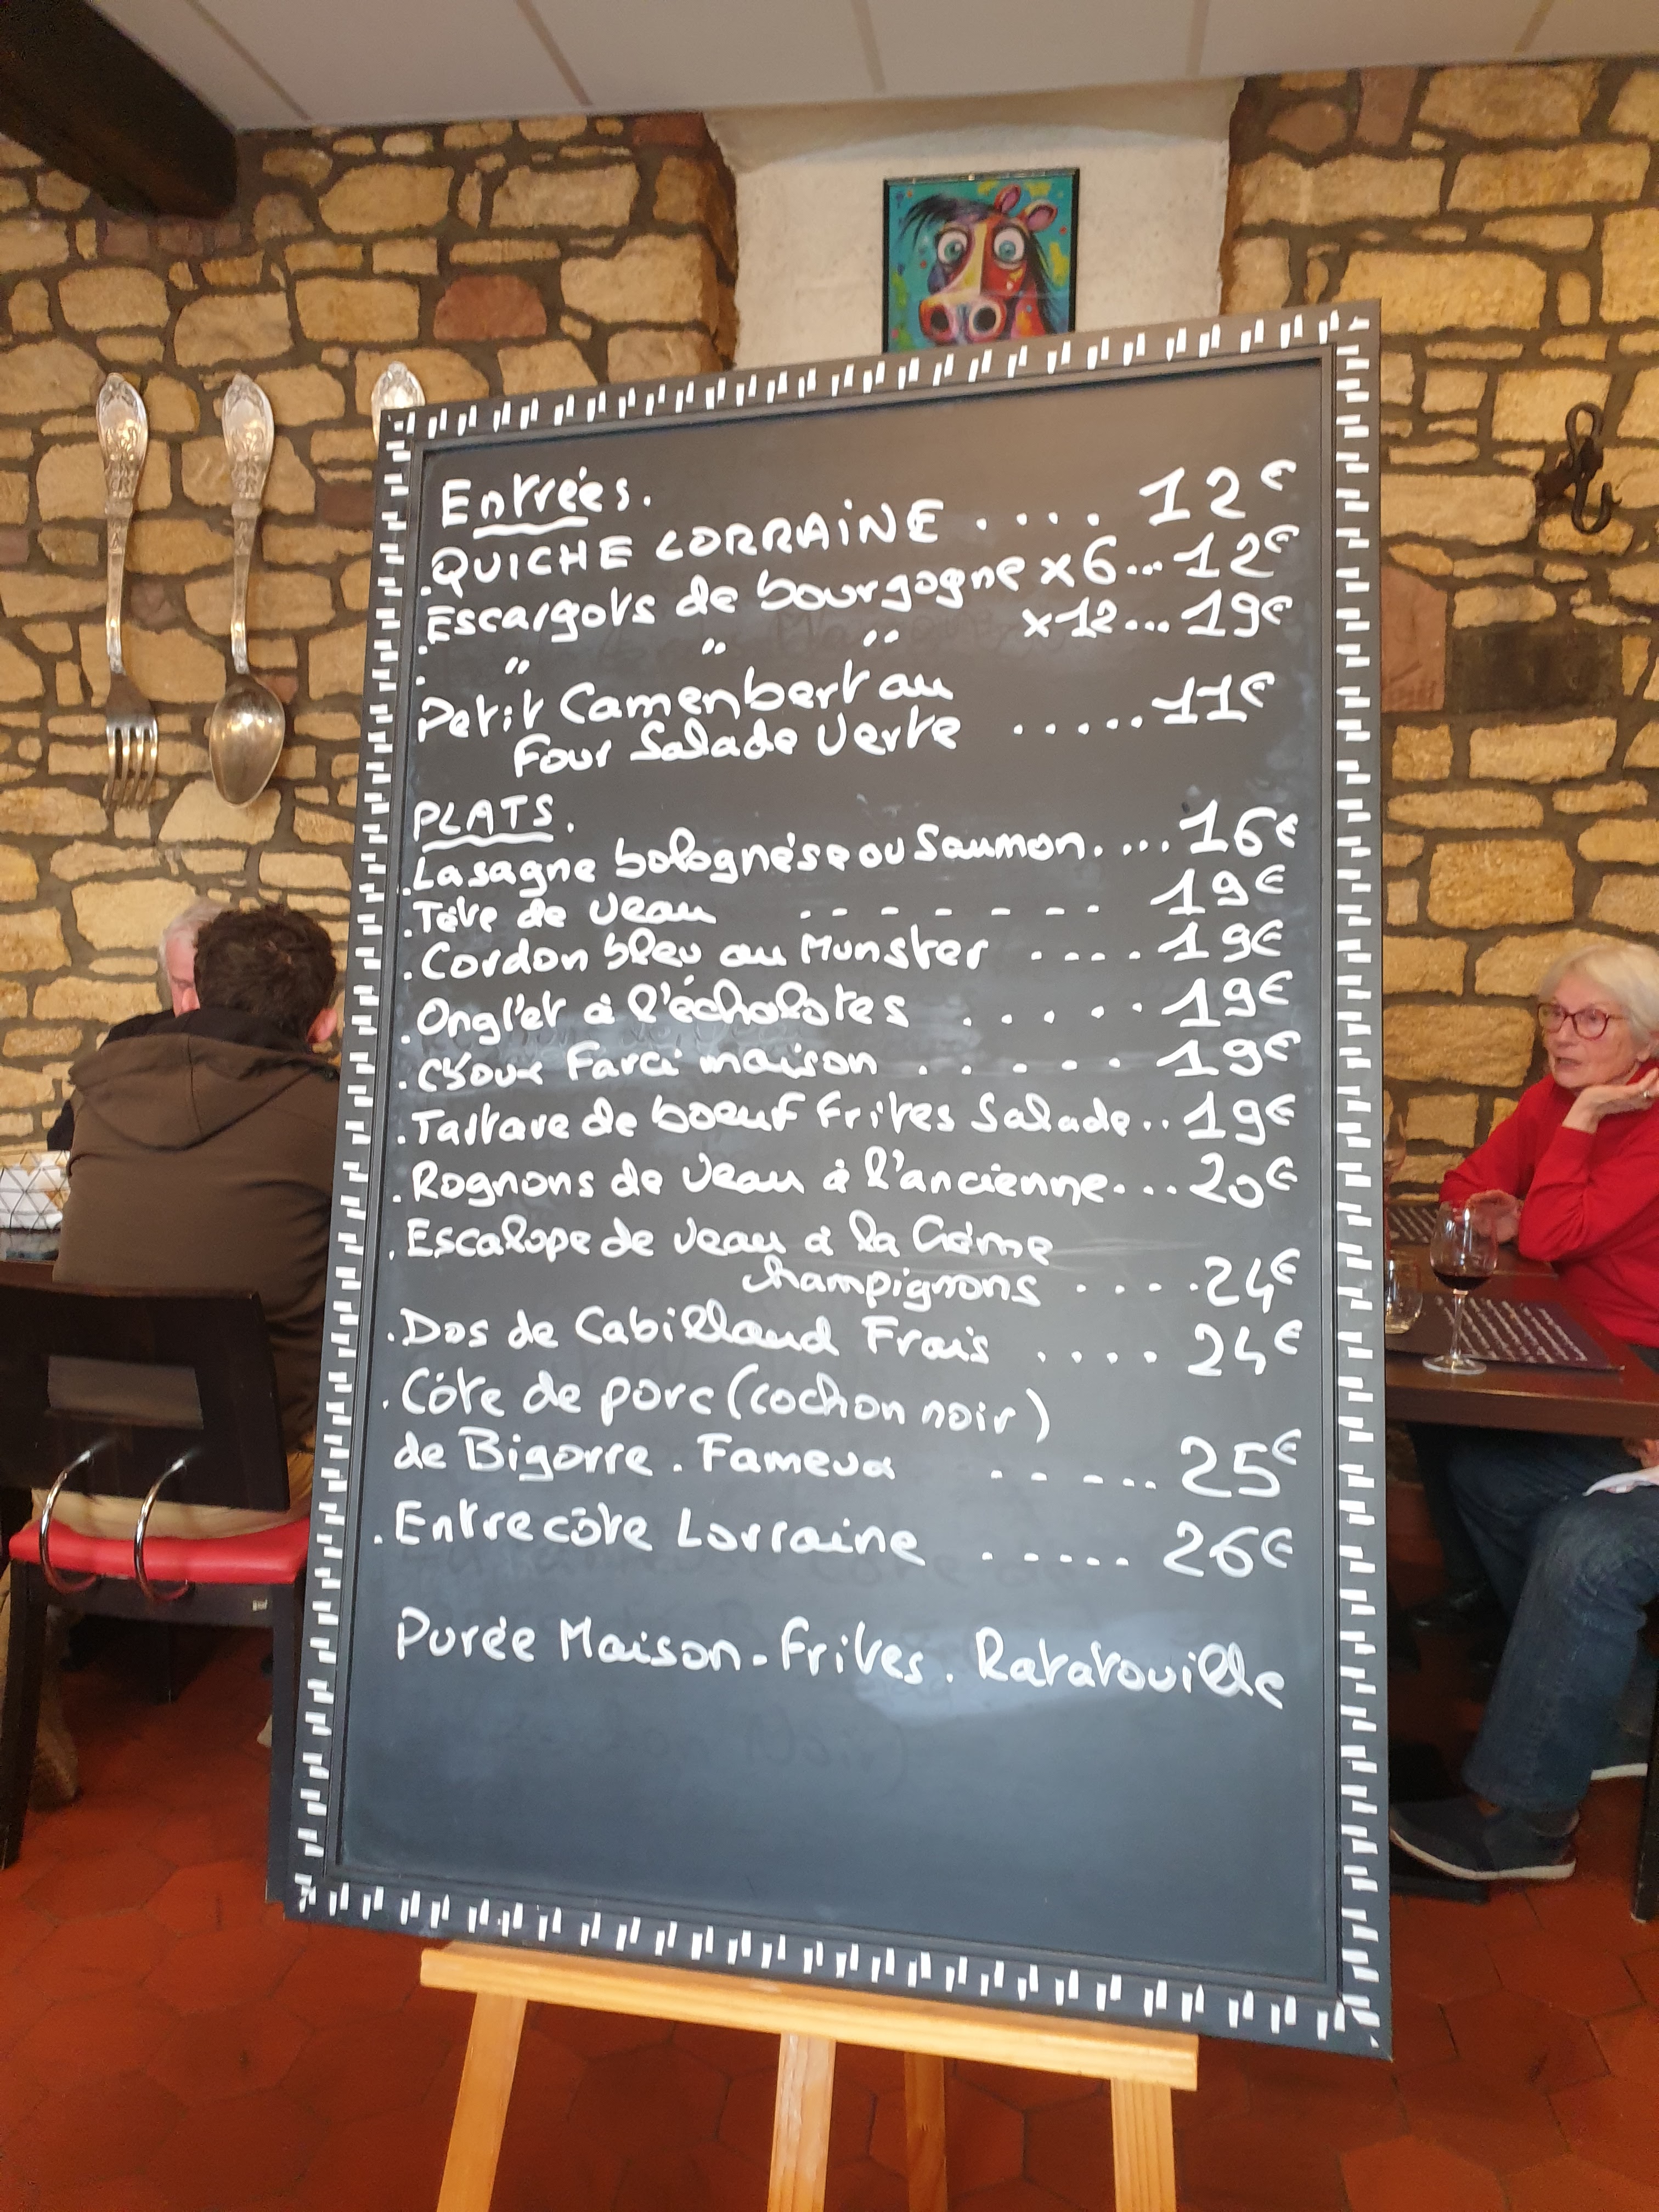 Entrées.
. QUICHE LORRAINE .... 12€
. Escargots de bourgogne x6... 12€
. " " " x12... 19€
Petit Camenbert au
Four Salade Verte ..... 11€
PLATS.
. Lasagne bolognése ou Saumon. ... 16€
. Tête de Veau - - - - - - - 19€
. Cordon bleu au Munster .... 19€
. Onglet à l'échalotes ..... 19€
. Choux Farci maison ..... 19€
. Tartare de boeuf Frites Salade.. 19€
. Rognons de Veau à l'ancienne... 20€
. Escalope de Veau à la Crème
champignons ..... 24€
. Dos de Cabillaud Frais .... 24€
. Côte de porc (cochon noir)
de Bigorre. Fameux ..... 25€
. Entrecôte Lorraine ..... 26€
Purée Maison - Frites. Ratatouille